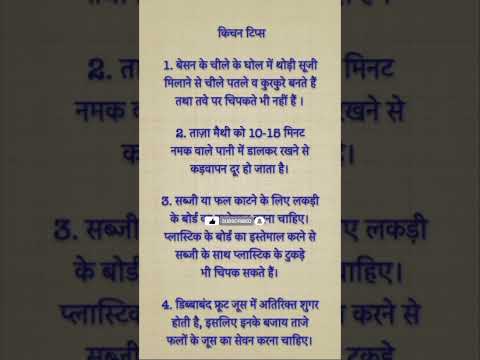 किचन टिप्स
1. बेसन के चीले के घोल में थोड़ी सूजी
मिलाने से चीले पतले व कुरकुरे बनते हैं
तथा तवे पर चिपकते भी नहीं हैं ।
2. ताज़ा मैथी को 10-15 मिनट
नमक वाले पानी में डालकर रखने से
कड़वापन दूर हो जाता है।
3. सब्जी या फल काटने के लिए लकड़ी
के बोर्ड चाहिए।
SUBSCRIBED
प्लास्टिक के बोर्ड का इस्तेमाल करने से
सब्जी के साथ प्लास्टिक के टुकड़े
भी चिपक सकते हैं।
4. डिब्बाबंद फ्रूट जूस में अतिरिक्त शुगर
होती है, इसलिए इनके बजाय ताजे
फलों के जूस का सेवन करना चाहिए।
2.
मिनट
नमक
से
3.
लकड़ी